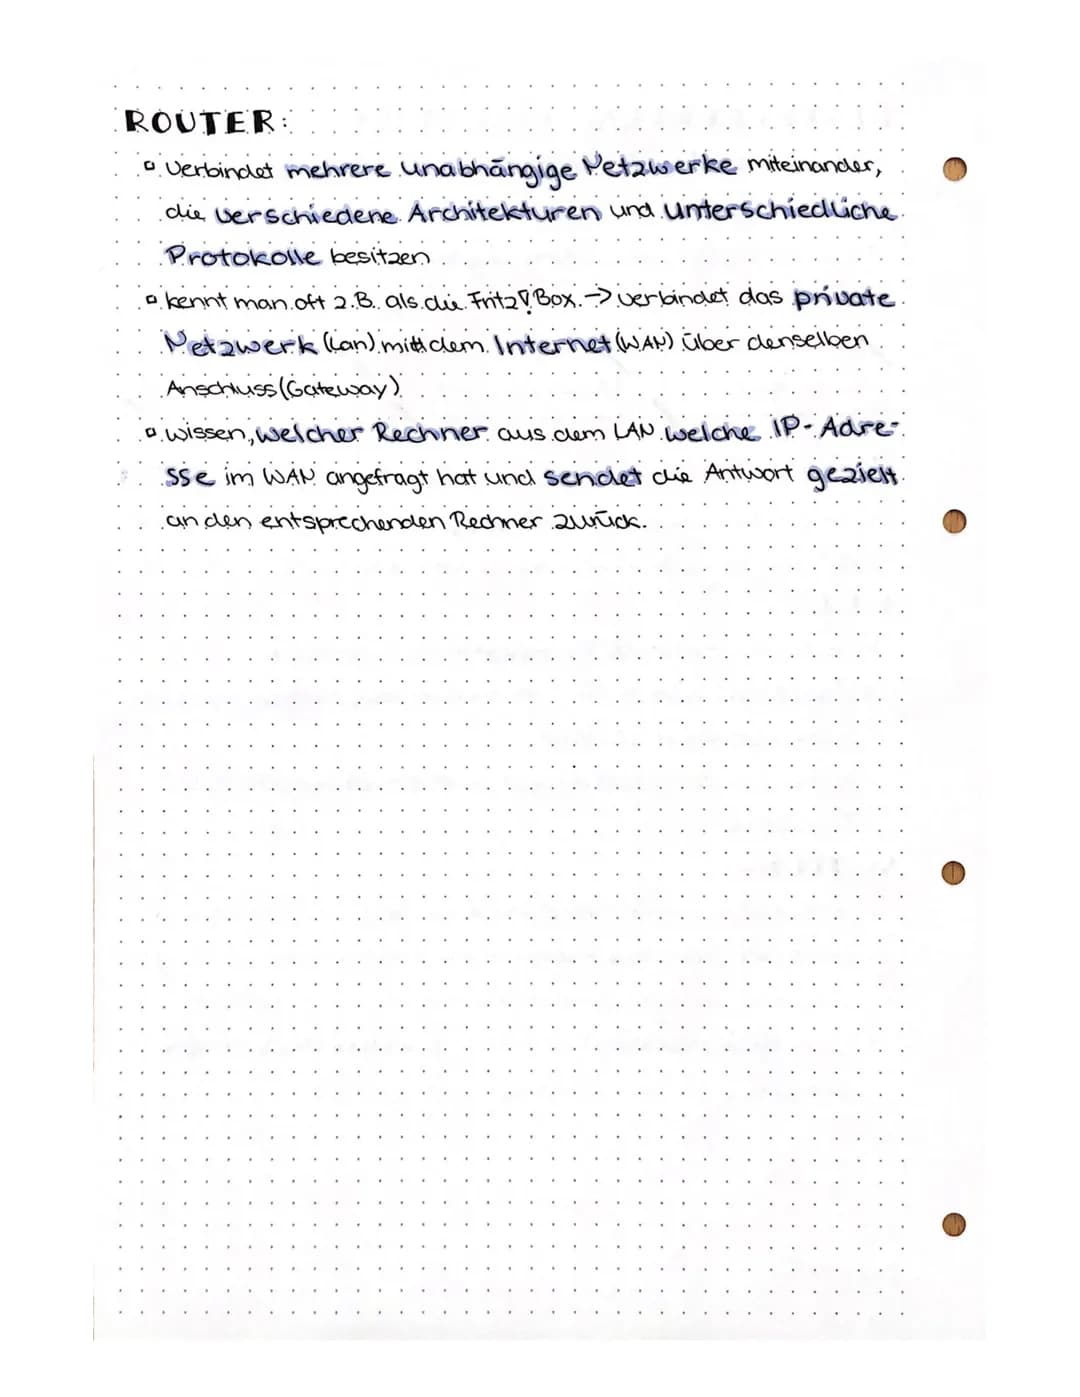 ROUTER:
▫ Verbindet mehrere unabhängige Netzwerke miteinander,
die verschiedene Architekturen und unterschiedliche
Protokolle besitzen
▫ kennt man oft z.B. als die Fritz!Box -> verbindet das private
Netzwerk (Lan) mitt dem Internet (WAN) über denselben
Anschluss (Gateway)
▫ wissen, welcher Rechner aus dem LAN welche IP-Adre-
sse im WAN angefragt hat und sendet die Antwort gezielt
an den entsprechenden Rechner zurück.